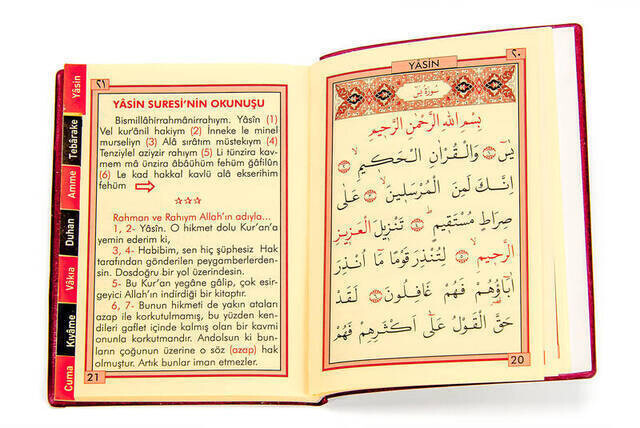 YÂSİN
٢٠
سورة يس
بِسْمِ اللهِ الرَّحْمٰنِ الرَّحِيمِ
يٰسٓ ﴿١﴾ وَالْقُرْاٰنِ الْحَكِيمِ ﴿٢﴾
اِنَّكَ لَمِنَ الْمُرْسَلِينَ ﴿٣﴾ عَلٰى
صِرَاطٍ مُسْتَقِيمٍ ﴿٤﴾ تَنْزِيلَ الْعَزِيزِ
الرَّحِيمِ ﴿٥﴾ لِتُنْذِرَ قَوْمًا مَٓا اُنْذِرَ
اٰبَٓاؤُ۬هُمْ فَهُمْ غَافِلُونَ ﴿٦﴾ لَقَدْ
حَقَّ الْقَوْلُ عَلٰٓى اَكْثَرِهِمْ فَهُمْ
20
٢١
YÂSİN SURESİ'NİN OKUNUŞU
Bismillâhirrahmânirrahıym. Yâsîn (1)
Vel kur'ânil hakiym (2) İnneke le minel
murseliyn (3) Alâ sırâtım müstekıym (4)
Tenziylel aziyzir rahıym (5) Li tünzira kav-
mem mâ ünzira âbâühüm fehüm ğâfilûn
(6) Le kad hakkal kavlü alâ ekserihim
fehüm
Rahman ve Rahıym Allah'ın adıyla...
1, 2- Yâsîn. O hikmet dolu Kur'an'a
yemin ederim ki,
3, 4- Habibim, sen hiç şüphesiz Hak
tarafından gönderilen peygamberlerden-
sin. Dosdoğru bir yol üzerindesin.
5- Bu Kur'an yegâne gâlip, çok esir-
geyici Allah'ın indirdiği bir kitaptır.
6, 7- Bunun hikmeti de yakın ataları
azap ile korkutulmamış, bu yüzden ken-
dileri gaflet içinde kalmış olan bir kavmi
onunla korkutmandır. Andolsun ki bun-
ların çoğunun üzerine o söz (azap) hak
olmuştur. Artık bunlar iman etmezler.
21
Yâsin
Tebârake
Amme
Duhan
Vâkıa
Kıyâme
Cuma